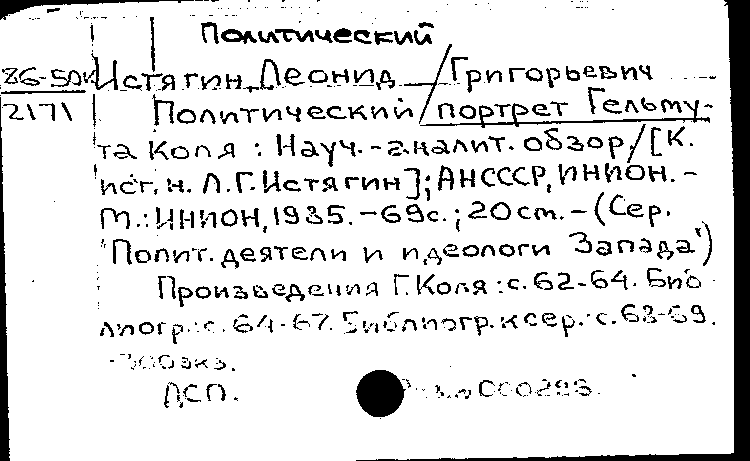 Политический
86-50к Истягин Леонид Григорьевич
2171 Политический портрет Гельму-
та Коля : Науч.-аналит. обзор / [К.
ист. н. Л.Г. Истягин]; АНСССР, ИНИОН. -
М.: ИНИОН, 1985. - 69с.; 20 см. - (Сер.
"Полит. деятели и идеологи Запада")
Произведения Г. Коля : с. 62-64. Биб
лиогр.: с. 64-67. Библиогр. к сер.: с. 68-69.
экз.
ДСП.